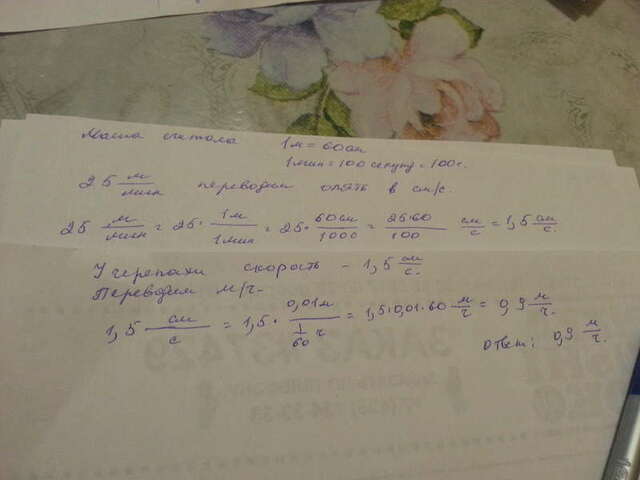 Маша считала 1м = 60см
1мин = 100 секунд = 100с.
25 м/мин переводим опять в см/с.
25 м/мин = 25 · 1м/1мин = 25 · 60см/100с = 25·60/100 см/с = 1,5 см/с
У черепахи скорость - 1,5 см/с.
Переводим м/ч.
1,5 см/с = 1,5 · 0,01м/(1/60 ч) = 1,5·0,01·60 м/ч = 0,9 м/ч.
Ответ: 0,9 м/ч.